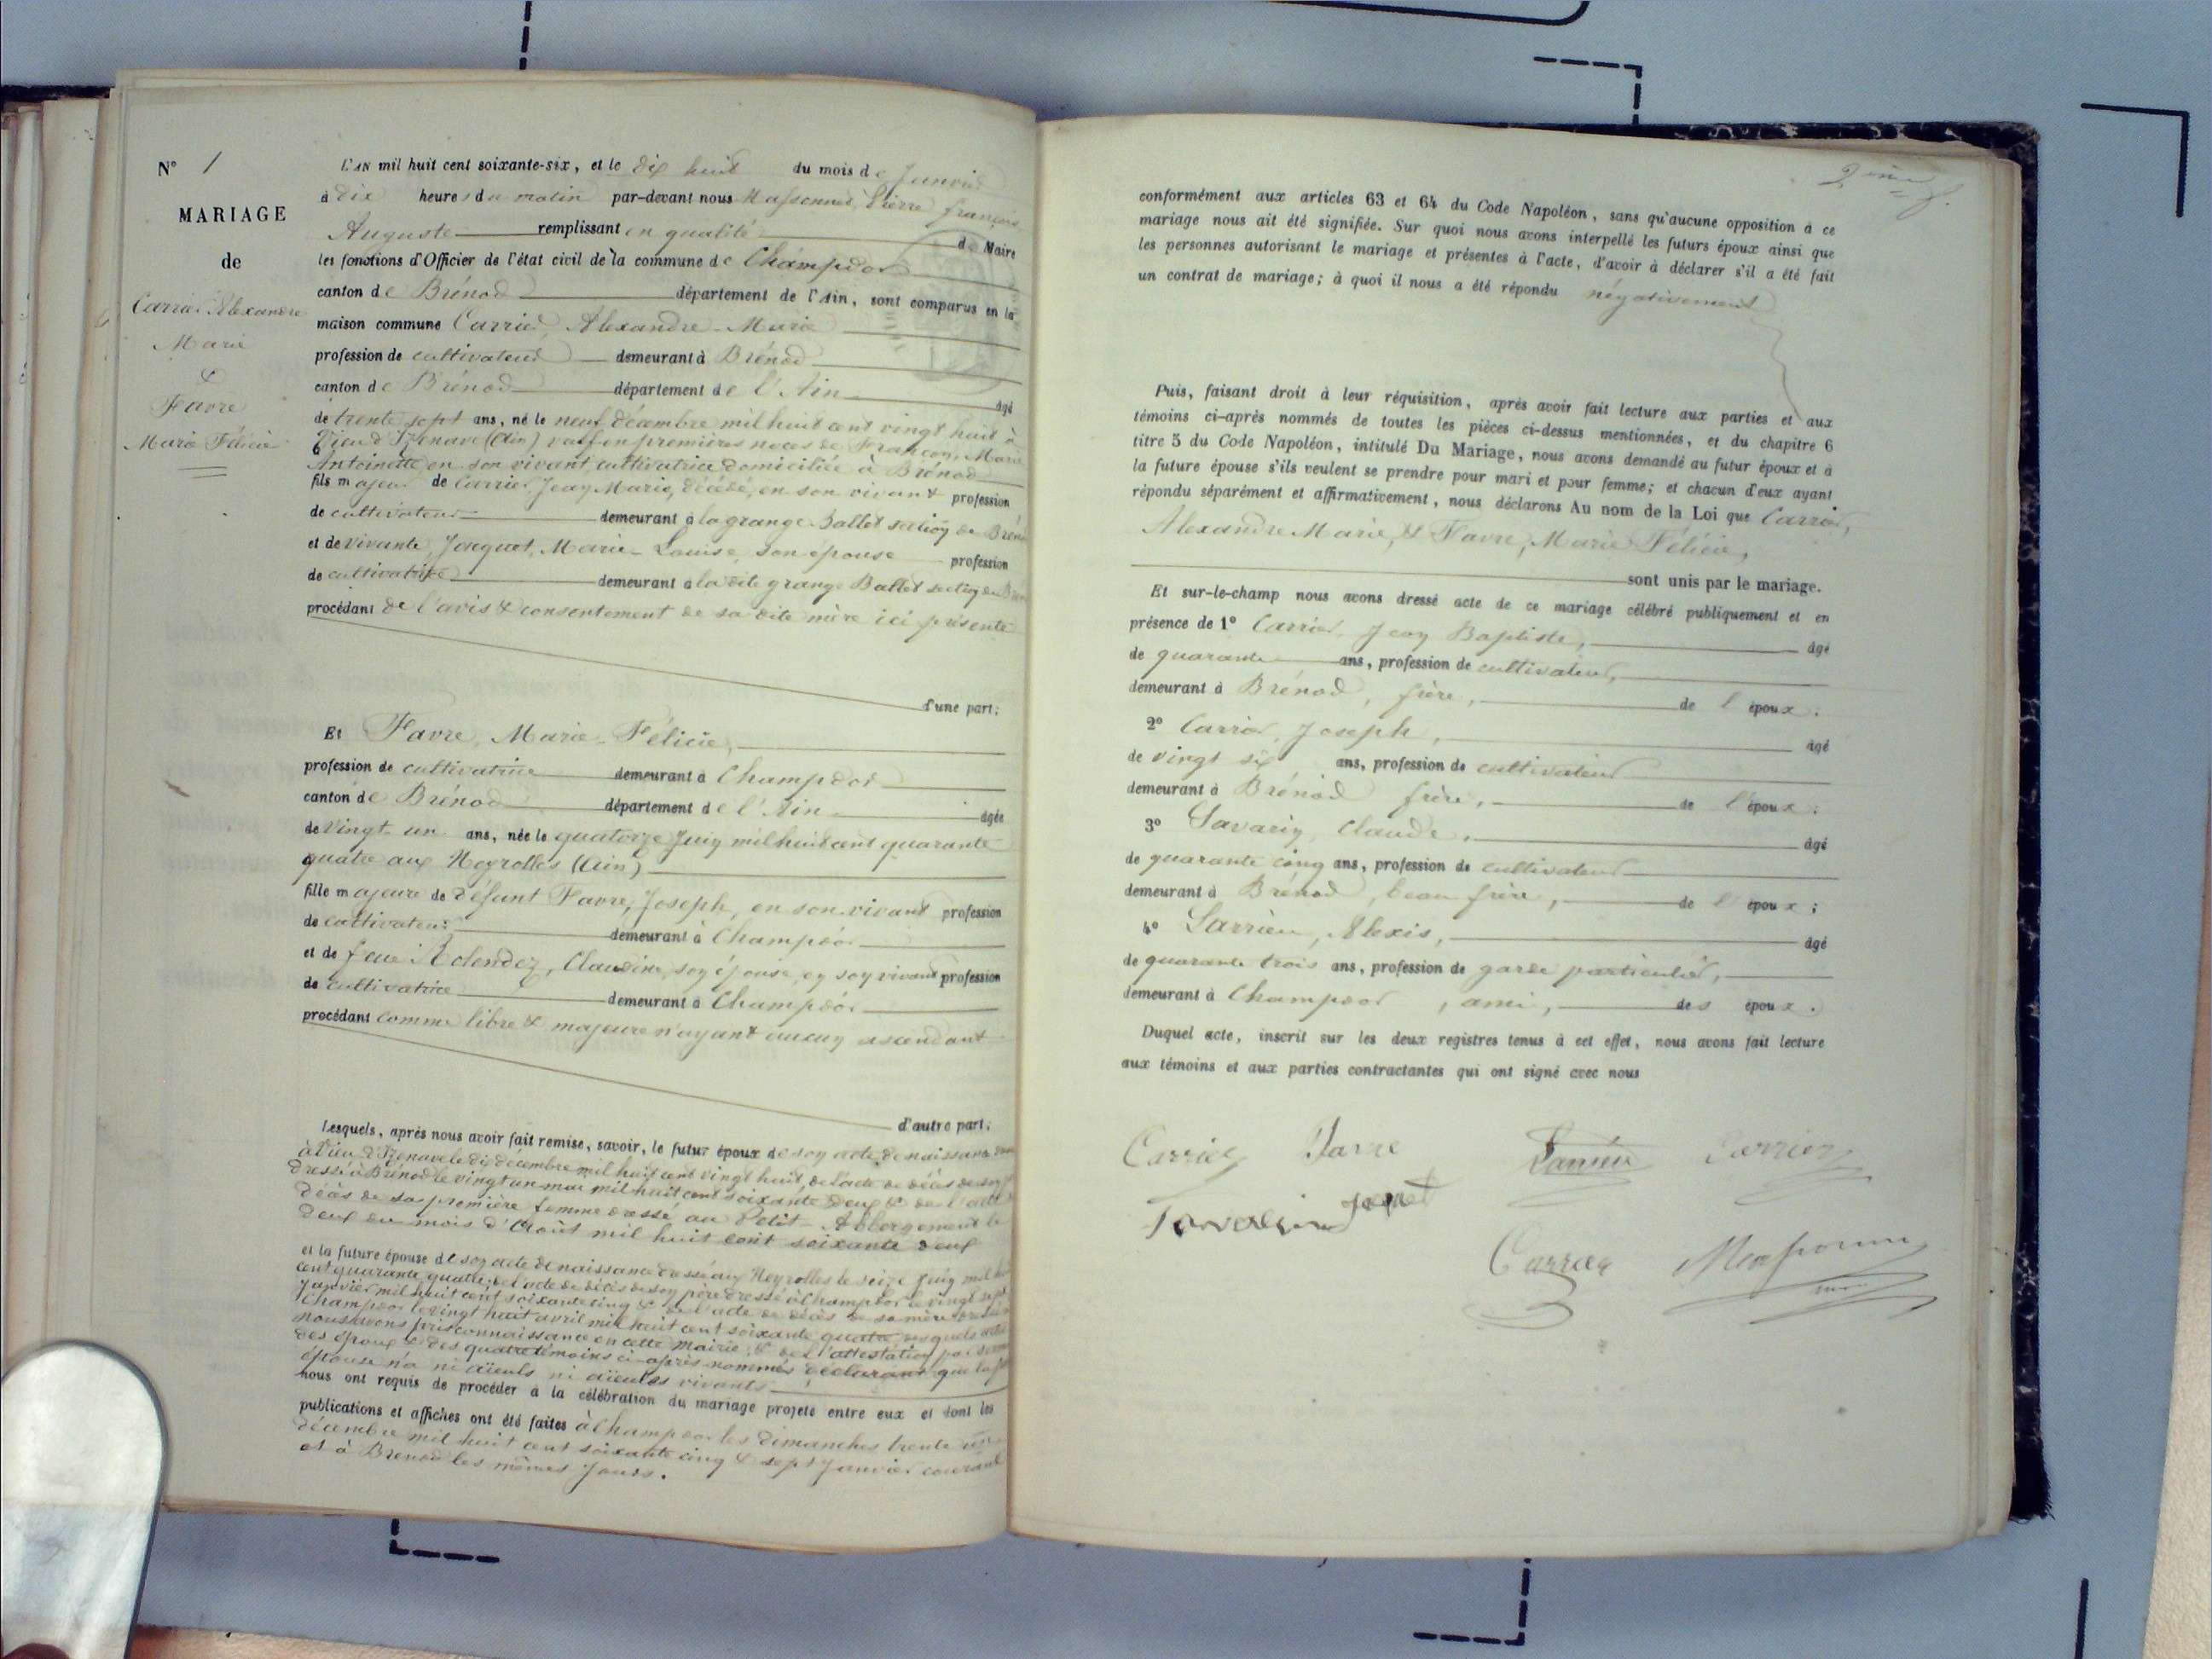 N° 1
MARIAGE
de
Carrier Alexandre
Marie
&
Favre
Marie Félicie
L'AN mil huit cent soixante-six, et le dix huit du mois de Janvier
à dix heures du matin par-devant nous Massonnet, Pierre françois
Auguste remplissant en qualité de Maire
les fonctions d'Officier de l'état civil de la commune de Champdor
canton de Brénod département de l'Ain, sont comparus en la
maison commune Carrier, Alexandre-Marie
profession de cultivateur demeurant à Brénod
canton de Brénod département de l'Ain âgé
de trente sept ans, né le neuf décembre mil huit cent vingt huit à
Vieu d'Izenave (Ain) veuf en premières noces de Françon, Marie
Antoinette, en son vivant cultivatrice domiciliée à Brénod
fils majeur de Carrier Jean Marie, décédé, en son vivant profession
de cultivateur demeurant à la grange Ballet section de Brénod
et de vivante, Jacquet, Marie-Louise, son épouse profession
de cultivatrice demeurant à la dite grange Ballet section de
procédant de l'avis & consentement de sa dite mère ici présente
d'une part;
Et Favre, Marie-Félicie,
profession de cultivatrice demeurant à Champdor
canton de Brénod département de l'Ain âgée
de Vingt-un ans, née le quatorze Juin mil huit cent quarante
quatre aux Neyrolles (Ain)
fille majeure de défunt Favre, Joseph, en son vivant profession
de cultivateur demeurant à Champdor
et de feue Claudine, son épouse, en son vivant profession
de cultivatrice demeurant à Champdor
procédant comme libre & majeure n'ayant aucun ascendant
d'autre part;
Lesquels, après nous avoir fait remise, savoir, le futur époux de son acte de naissance
à Vieu d'Izenave le dix décembre mil huit cent vingt huit, de l'acte de décès de son
dressé à Brénod le vingt un mai mil huit cent soixante deux & de l'acte
décès de sa première femme dressé au Petit-Abbergement le
deux du mois d'Août mil huit cent soixante deux
et la future épouse de son acte de naissance dressé aux Neyrolles le seize Juin mil
cent quarante quatre, de l'acte de décès de son père dressé à Champdor le vingt sept
Janvier mil huit cent soixante cinq & de l'acte de décès de sa mère
Champdor le vingt huit avril mil huit cent soixante quatre desquels actes
nous avons pris connaissance en cette Mairie, & de l'attestation
des époux & des quatre témoins ci-après nommés déclarant que la
épouse n'a ni aïeuls ni aïeules vivants
nous ont requis de procéder à la célébration du mariage projeté entre eux et dont les
publications et affiches ont été faites à Champdor les dimanches trente un
décembre mil huit cent soixante cinq & sept Janvier courant
et à Brenod les mêmes Jours.
2ème
conformément aux articles 63 et 64 du Code Napoléon, sans qu'aucune opposition à ce
mariage nous ait été signifiée. Sur quoi nous avons interpellé les futurs époux ainsi que
les personnes autorisant le mariage et présentes à l'acte, d'avoir à déclarer s'il a été fait
un contrat de mariage; à quoi il nous a été répondu négativement
Puis, faisant droit à leur réquisition, après avoir fait lecture aux parties et aux
témoins ci-après nommés de toutes les pièces ci-dessus mentionnées, et du chapitre 6
titre 5 du Code Napoléon, intitulé Du Mariage, nous avons demandé au futur époux et à
la future épouse s'ils veulent se prendre pour mari et pour femme; et chacun d'eux ayant
répondu séparément et affirmativement, nous déclarons Au nom de la Loi que Carrier,
Alexandre Marie, & Favre, Marie Félicie,
sont unis par le mariage.
Et sur-le-champ nous avons dressé acte de ce mariage célébré publiquement et en
présence de 1° Carrier, Jean Baptiste, âgé
de quarante ans, profession de cultivateur,
demeurant à Brénod, frère, de l'époux.
2° Carrier, Joseph, âgé
de vingt six ans, profession de cultivateur
demeurant à Brénod frère, de l'époux.
3° Savarin, Claude, âgé
de quarante cinq ans, profession de cultivateur
demeurant à Brénod, beau frère, de l'époux;
4° Larrieu, Alexis, âgé
de quarante trois ans, profession de garde particulier,
demeurant à Champdor, ami, des époux.
Duquel acte, inscrit sur les deux registres tenus à cet effet, nous avons fait lecture
aux témoins et aux parties contractantes qui ont signé avec nous
Carrier Favre Larrieu Carrier
Carrier